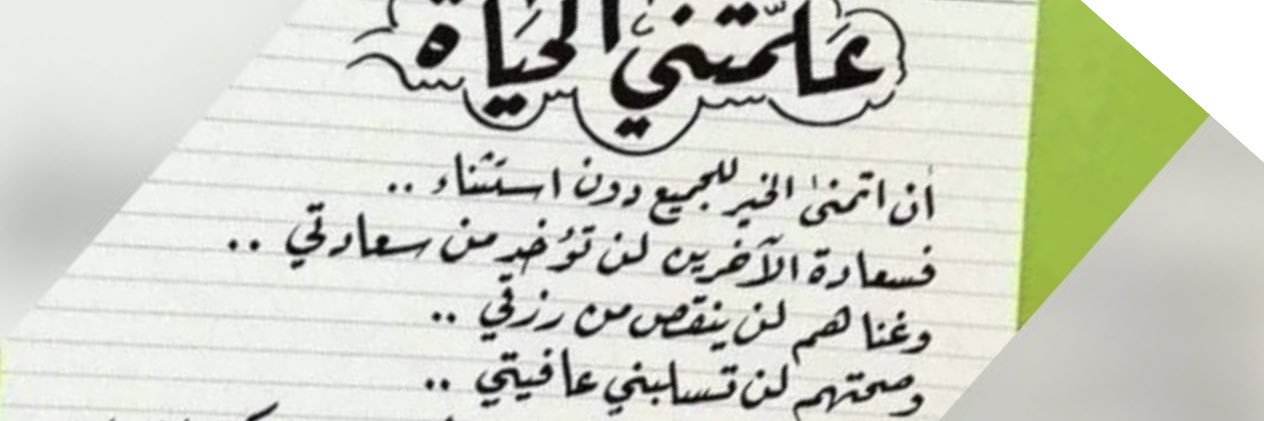 علّمتني الحياة
أن اتمنى الخير للجميع دون استثناء ..
فسعادة الآخرين لن تؤخد من سعادتي ..
وغناهم لن ينقص من رزقي ..
وصحتهم لن تسلبني عافيتي ..